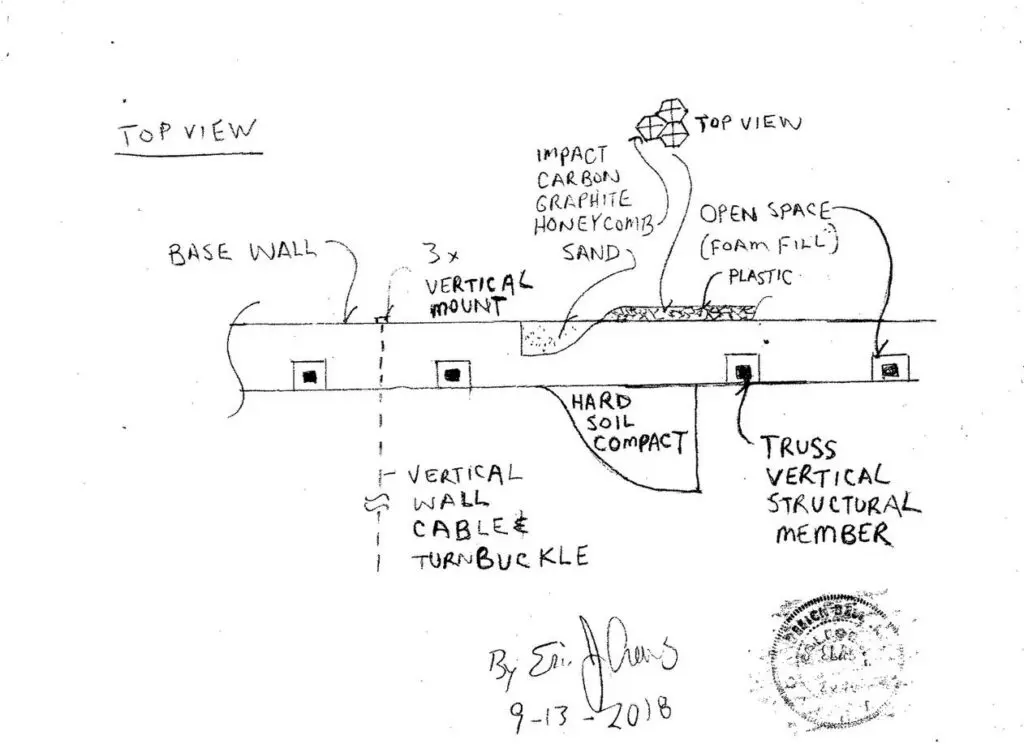 TOP VIEW
TOP VIEW
IMPACT
CARBON
GRAPHITE
HONEYCOMB
SAND
OPEN SPACE
(FOAM FILL)
PLASTIC
BASE WALL
3x
VERTICAL
MOUNT
HARD
SOIL
COMPACT
TRUSS
VERTICAL
STRUCTURAL
MEMBER
VERTICAL
WALL
CABLE &
TURNBUCKLE
By Eric J
9-13-2018